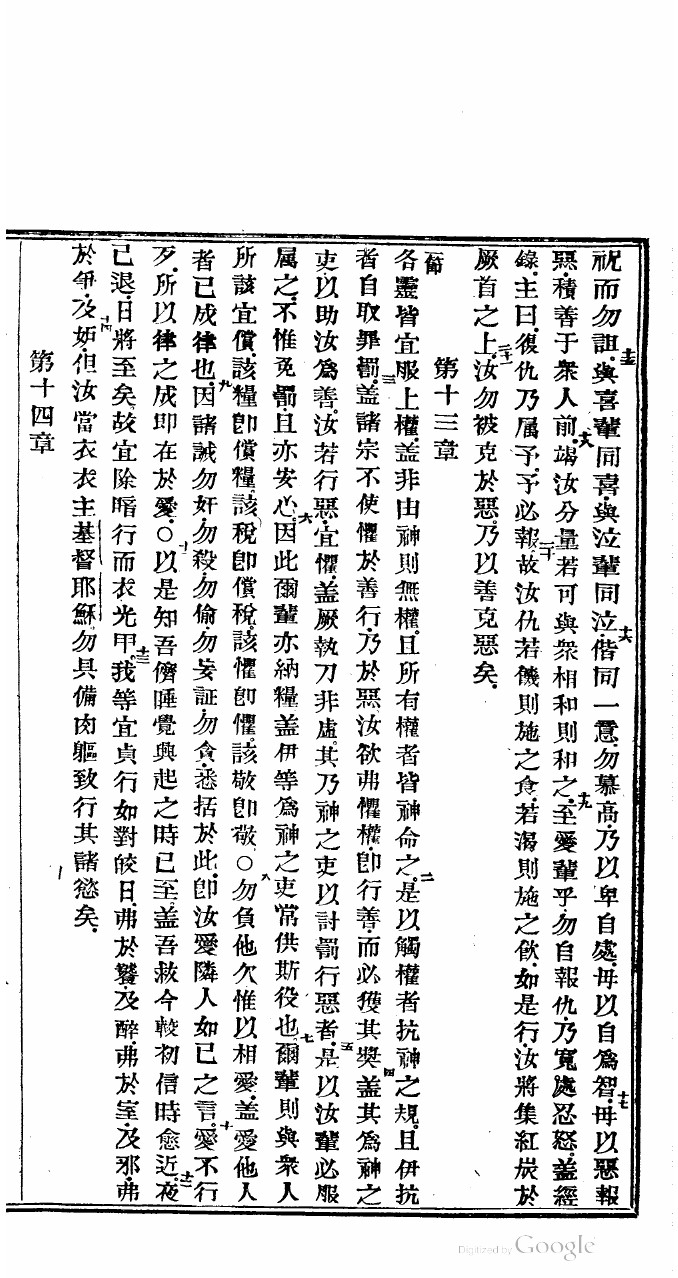 祝而勿詛與喜輩同喜與泣輩同泣偕同一意勿慕高乃以卑自處毋以自爲智毋以惡報
惡積善于衆人前竭汝分量若可與衆相和則和之至愛輩乎勿自報仇乃寬處忍怒蓋經
錄主曰復仇乃属予予必報故汝仇若饑則施之食若渴則施之飲如是行汝將集紅炭於
厥首之上汝勿被克於惡乃以善克惡矣
第十三章
各靈皆宜服上權蓋非由神則無權且所有權者皆神命之是以觸權者抗神之規且伊抗
者自取罪罰蓋諸宗不使懼於善行乃於惡汝欲弗懼權卽行善而必獲其奬蓋其爲神之
吏以助汝爲善汝若行惡宜懼蓋厥執刀非虛其乃神之吏以討罰行惡者是以汝輩必服
属之不惟免罰且亦安心因此爾輩亦納糧蓋伊等爲神之吏常供斯役也爾輩則與衆人
所該宜償該糧卽償糧該稅卽償稅該懼卽懼該敬卽敬○勿負他欠惟以相愛蓋愛他人
者已成律也因諸誡勿奸勿殺勿偷勿妄証勿貪悉括於此卽汝愛隣人如己之言愛不行
歹所以律之成卽在於愛○以是知吾儕睡覺興起之時已至蓋吾救今較初信時愈近夜
已退日將至矣故宜除暗行而衣光甲我等宜貞行如對皎日弗於饕及醉弗於室及邪弗
於爭及妬但汝當衣衣主基督耶穌勿具備肉軀致行其諸慾矣
第十四章
Digitized by Google